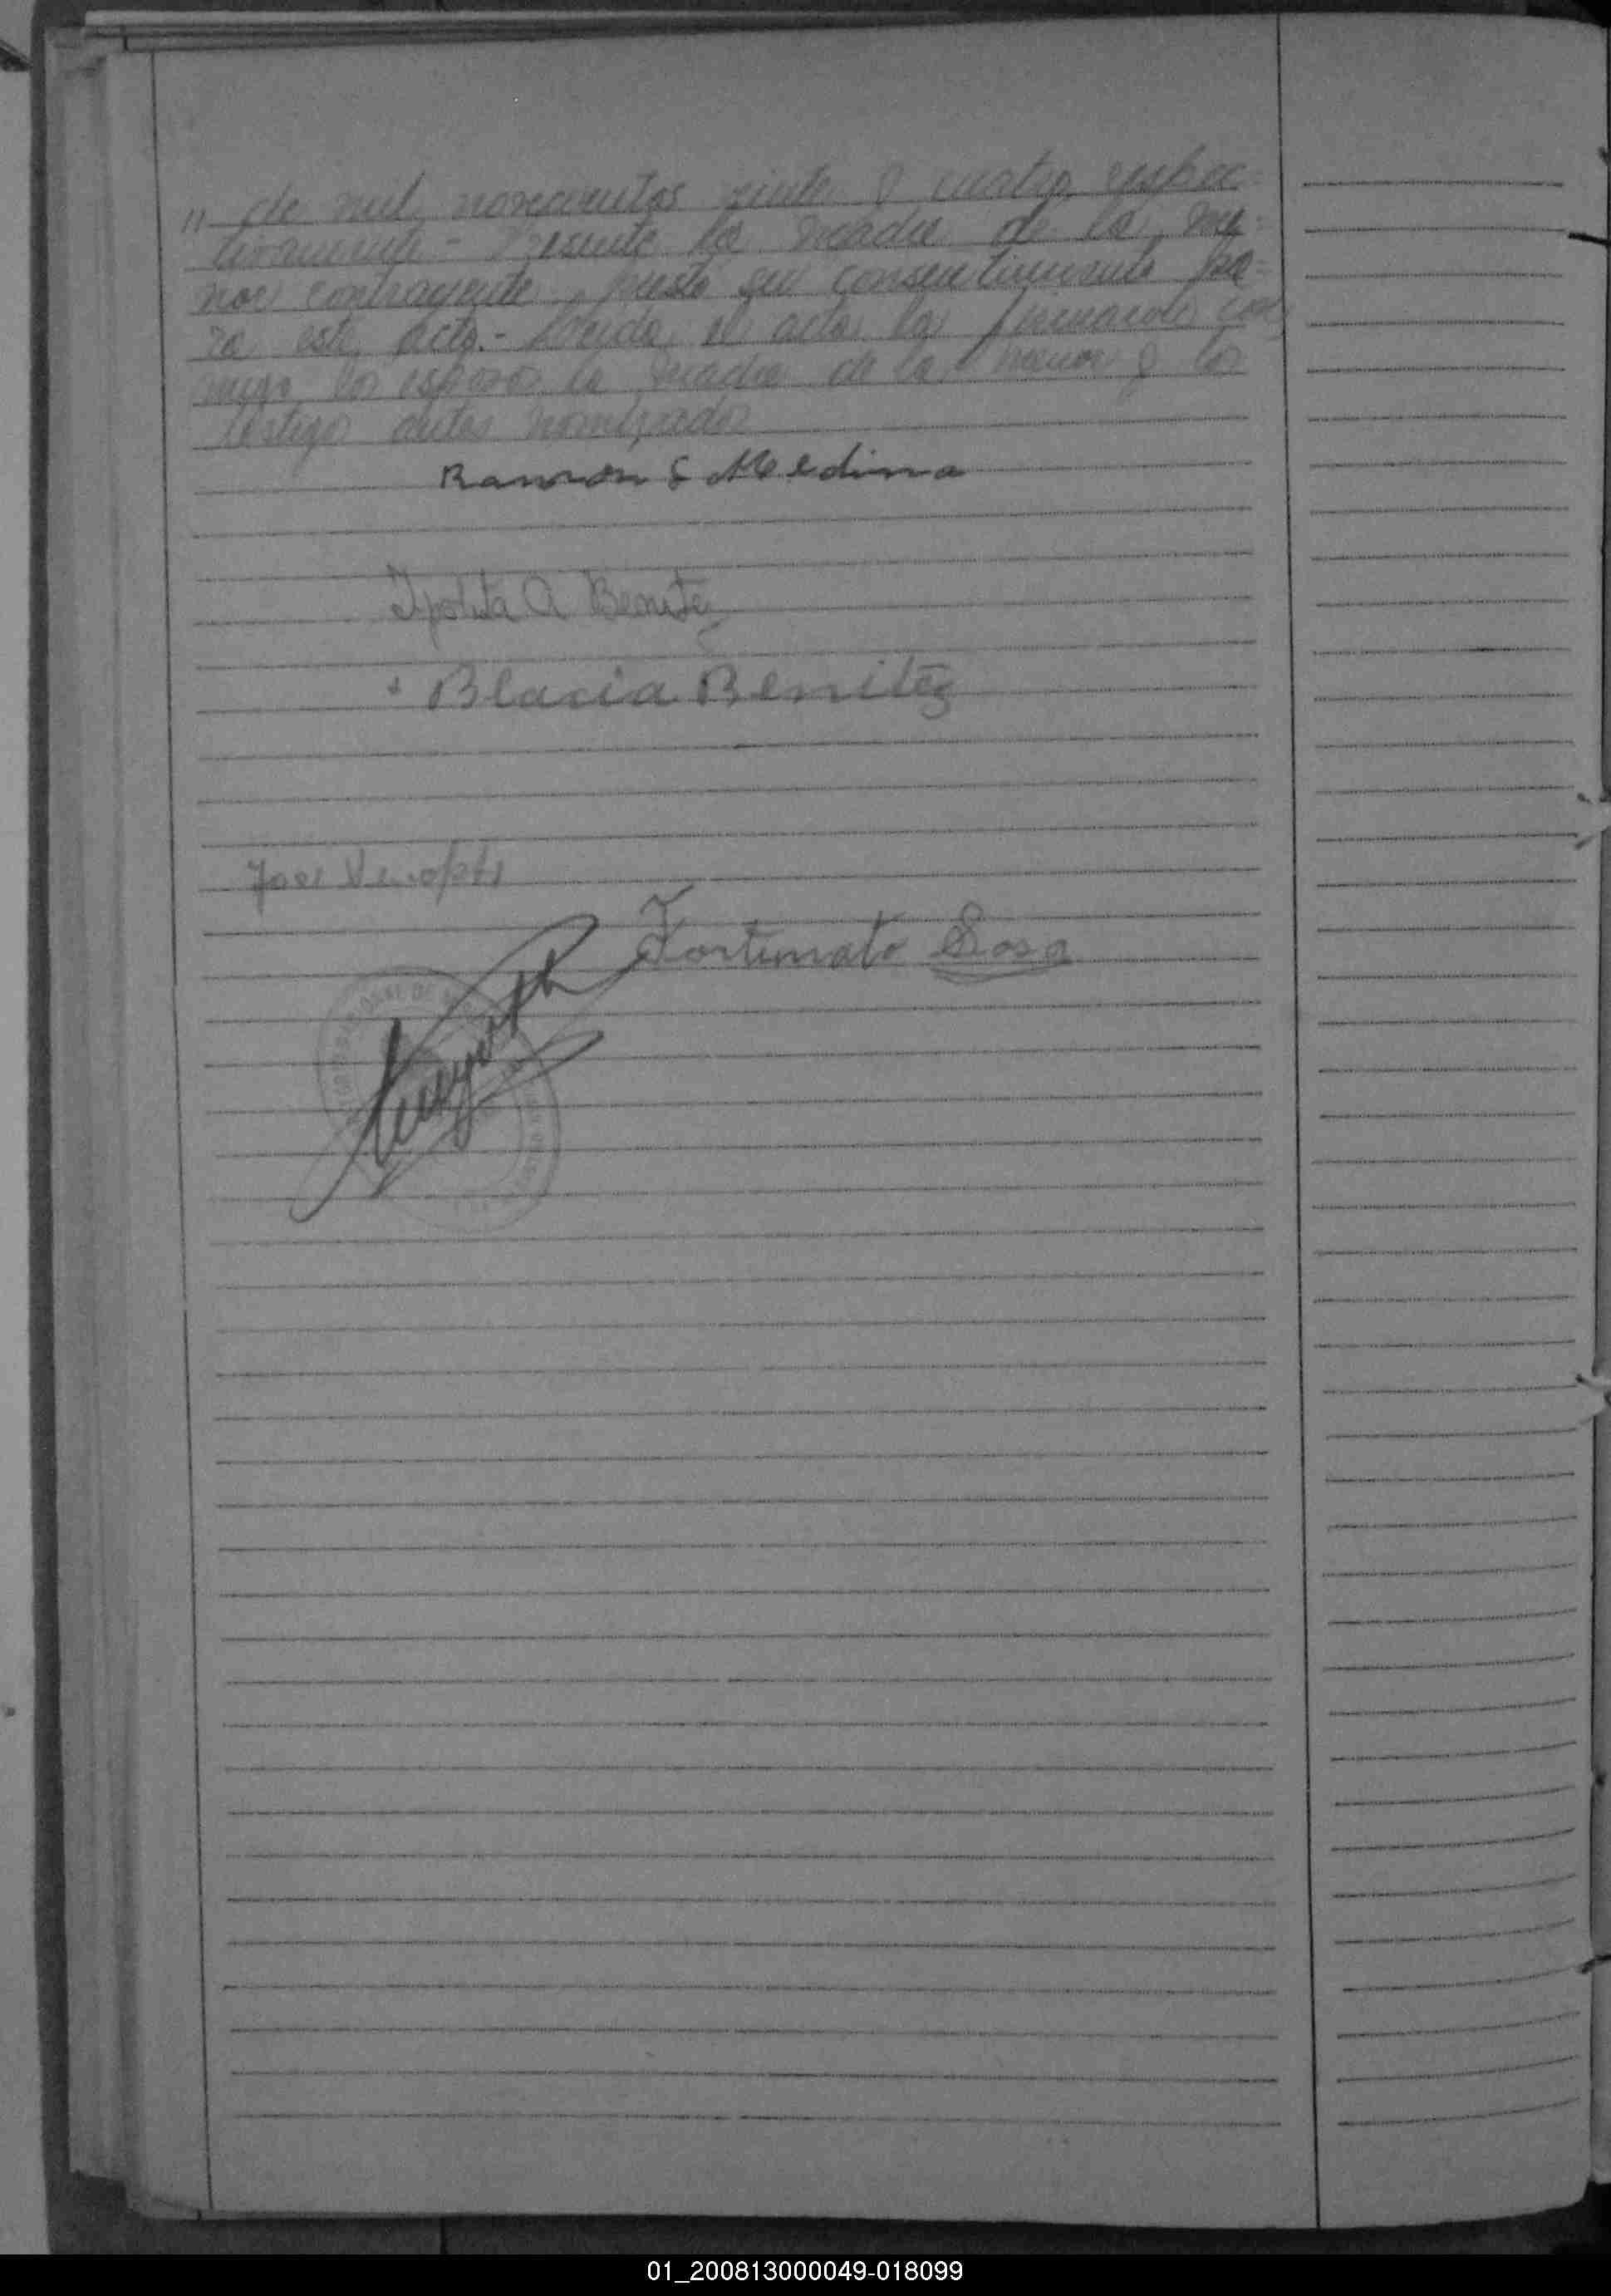 " de mil novecientos veinte y cuatro respec-
tivamente.- Presente la madre de la me-
nor contrayente, prestó su consentimiento pa-
ra este acto.- Leída el acta la firmaron con
migo los esposos la madre de la menor y los
testigos antes nombrados
Ramon S Medina
Ipolita A Benite
+ Blacia Benitez
Jose
Fortunato Sosa
01_200813000049-018099